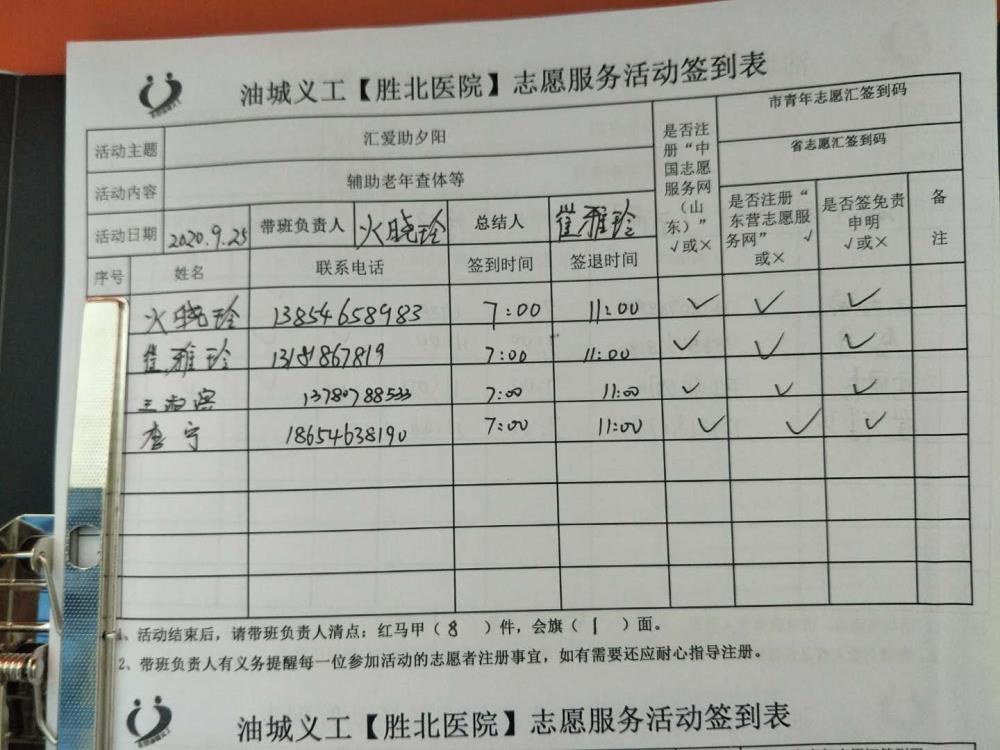 油城义工【胜北医院】志愿服务活动签到表
活动主题 汇爱助夕阳 是否注册“中国志愿服务网（山东）”√或× 市青年志愿汇签到码
省志愿汇签到码
活动内容 辅助老年查体等 是否注册“东营志愿服务网” √或× 是否签免责申明 √或× 备注
活动日期 2020.9.25 带班负责人 火晓玲 总结人 崔雅玲
序号 姓名 联系电话 签到时间 签退时间
火晓玲 13854658983 7:00 11:00 ✓ ✓ ✓
崔雅玲 13181867819 7:00 11:00 ✓ ✓ ✓
13780788533 7:00 11:00 ✓ ✓ ✓
李宁 18654638190 7:00 11:00 ✓ ✓ ✓
1、活动结束后，请带班负责人清点：红马甲（ 8 ）件，会旗（ 1 ）面。
2、带班负责人有义务提醒每一位参加活动的志愿者注册事宜，如有需要还应耐心指导注册。
油城义工【胜北医院】志愿服务活动签到表